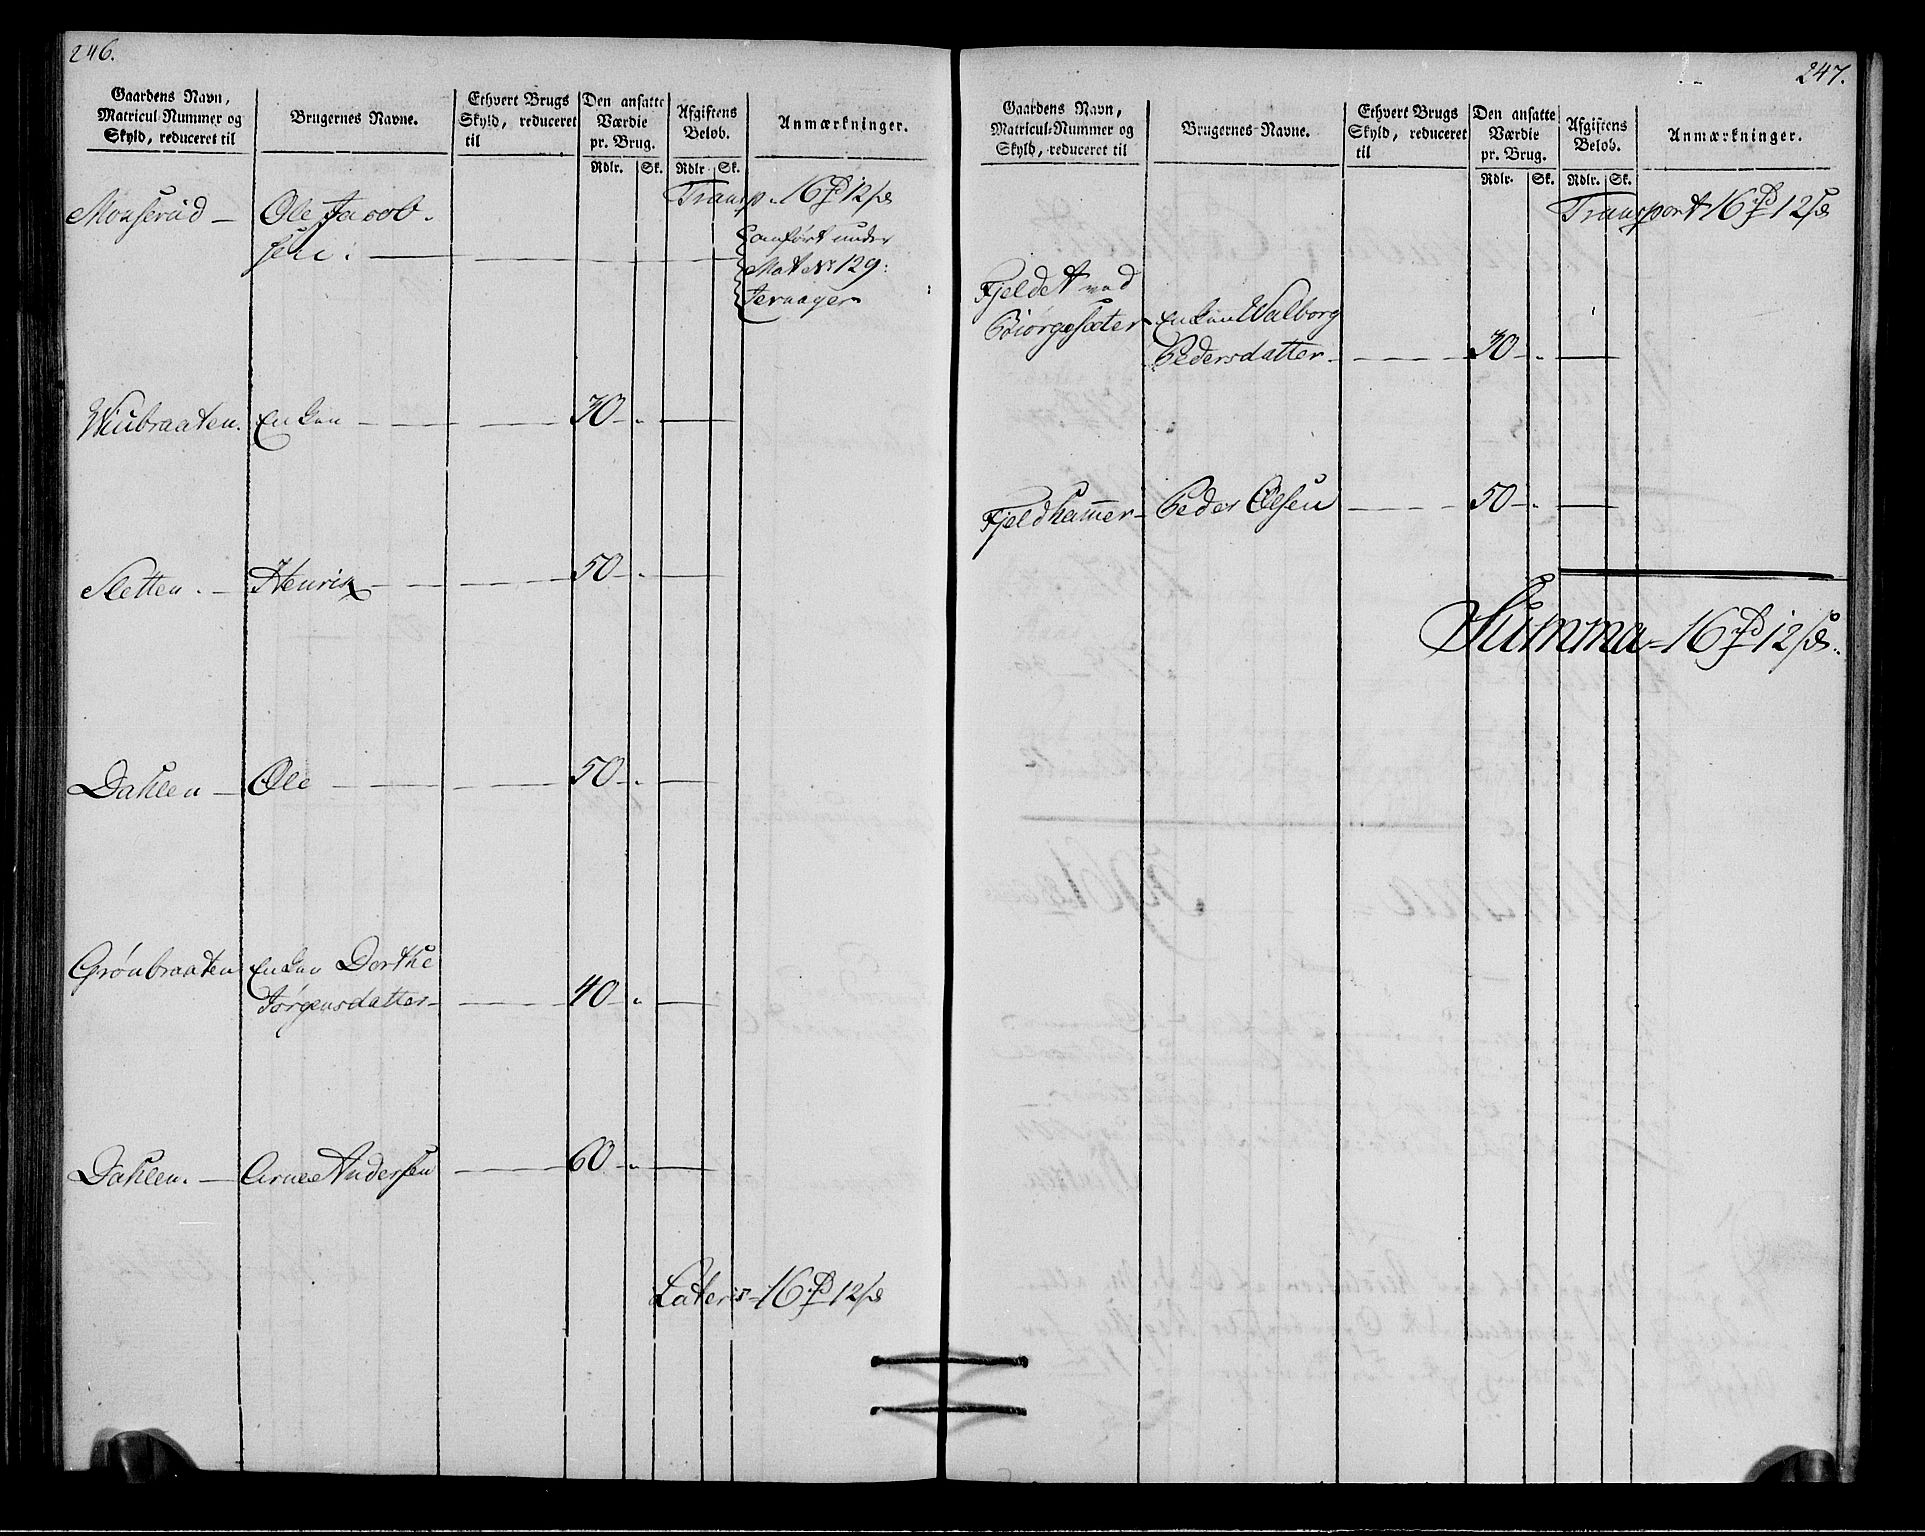 246.
Gaardens Navn,
Matricul-Nummer og
Skyld, reduceret til
Brugernes Navne.
Ethvert Brugs
Skyld, reduceret
til
Den ansatte
Værdie
pr. Brug.
Rdlr. Sk.
Afgiftens
Beløb.
Rdlr. Sk.
Anmærkninger.
Transp. 16 rd 12 s
Monserud — Ole Jacob-
sen.
anført under
Mat: Nr 129:
Jernager
Wiubraaten. Enken 30
Sletten. — Henrik 50
Dahlen — Ole 50
Grönbraaten Enken Dorthe
Jörgensdatter 40
Dahlen. — Arne Andersen 60
Lateris 16 rd 12 s
247.
Gaardens Navn,
Matricul-Nummer og
Skyld, reduceret til
Brugernes-Navne.
Ethvert Brugs
Skyld, reduceret
til
Den ansatte
Værdie
pr. Brug.
Rdlr. Sk.
Afgiftens
Beløb.
Rdlr. Sk.
Anmærkninger.
Transport 16 rd 12 s
Fjeldet ved
Biörgesæter Enken Walborg
Pedersdatter 30
Fjeldhammer Peder Olsen 50
Summa 16 rd 12 s